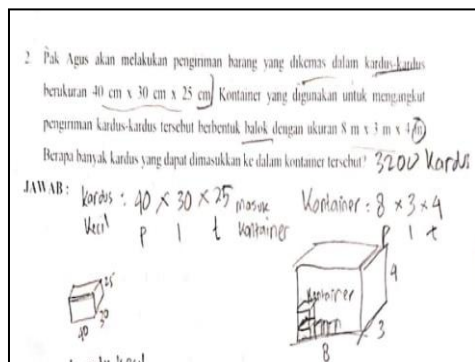 2. Pak Agus akan melakukan pengiriman barang yang dikemas dalam kardus-kardus
berukuran 40 cm x 30 cm x 25 cm. Kontainer yang digunakan untuk mengangkut
pengiriman kardus-kardus tersebut berbentuk balok dengan ukuran 8 m x 3 m x 4 m.
Berapa banyak kardus yang dapat dimasukkan ke dalam kontainer tersebut? 3200 kardus
JAWAB: kardus : 40 x 30 x 25 masuk Kontainer : 8 x 3 x 4
kecil p l t kontainer p l t
25
30
40
kontainer
4
3
8